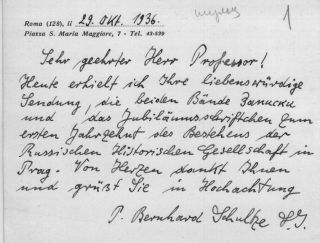 1
Roma (128), li 29. Okt. 1936.
Piazza S. Maria Maggiore, 7 - Tel. 43-839
Sehr geehrter Herr Professor!
Heute erhielt ich Ihre liebenswürdige
Sendung, die beiden Bände Записки
und das Jubiläumsschriftchen zum
ersten Jahrzehnt des Bestehens der
Russischen Historischen Gesellschaft in
Prag. Von Herzen dankt Ihnen
und grüßt Sie in Hochachtung
P. Bernhard Schultze S.J.